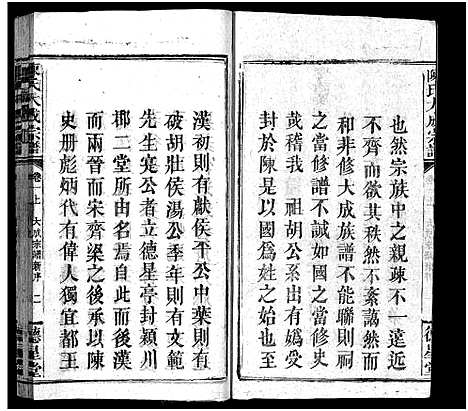 陳氏大成宗譜
也然宗族中之親疎不一遠近
不齊而欲其秩然不紊藹然而
和非修大成族譜不能聯則祠
之當修譜不誠如國之當修史
哉稽我 祖胡公系出有媯受
封於陳是以國為姓之始
德星堂
漢初則有獻侯平公中葉則有
破胡壯侯湯公季年則有文範
先生寔公者立德星亭封潁川
郡二堂所由名焉自此而後漢
而兩晉而宋齊梁之後承以陳
史册彪炳代有偉人獨宜都王
陳氏大成宗譜
卷一上 大成宗譜新序 二
德星堂